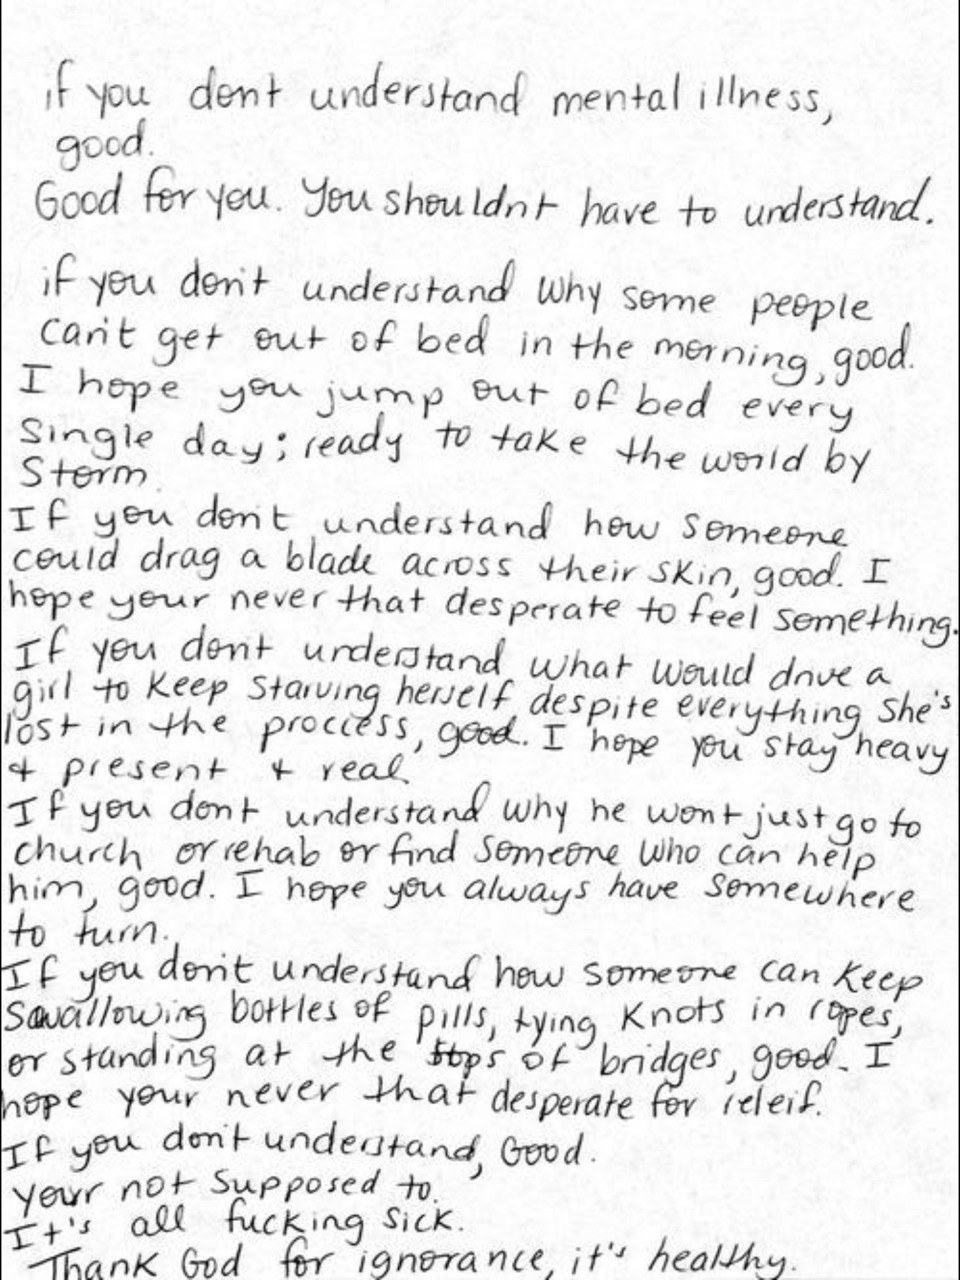 if you don't understand mental illness,
good.
Good for you. You shouldn't have to understand.
if you don't understand why some people
can't get out of bed in the morning, good.
I hope you jump out of bed every
single day; ready to take the world by
storm.
If you don't understand how someone
could drag a blade across their skin, good. I
hope your never that desperate to feel something.
If you don't understand what would drive a
girl to keep starving herself despite everything she's
lost in the proccess, good. I hope you stay heavy
& present & real
If you don't understand why he won't just go to
church or rehab or find someone who can help
him, good. I hope you always have somewhere
to turn.
If you don't understand how someone can keep
swallowing bottles of pills, tying knots in ropes,
or standing at the tops of bridges, good. I
hope your never that desperate for releif.
If you don't understand, Good.
your not supposed to.
It's all fucking sick.
Thank God for ignorance, it's healthy.